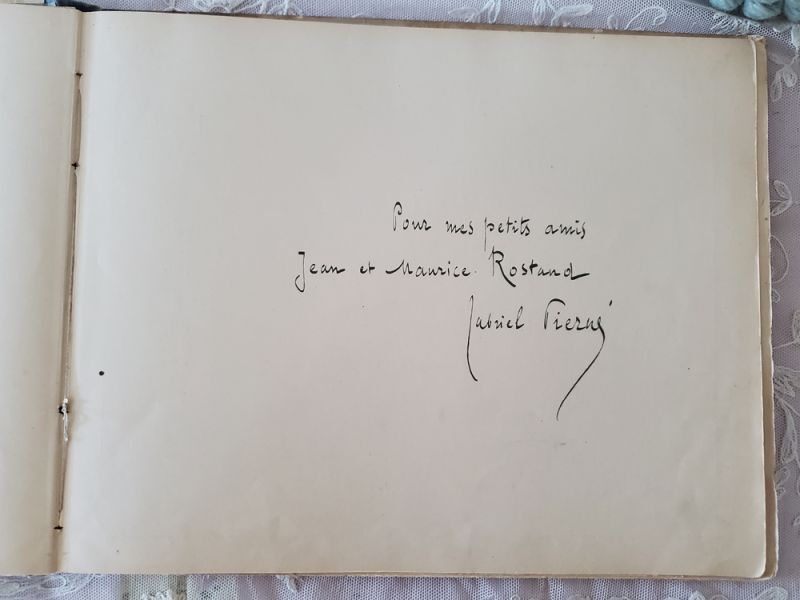 Pour mes petits amis
Jean et Maurice Rostand
Gabriel Pierné